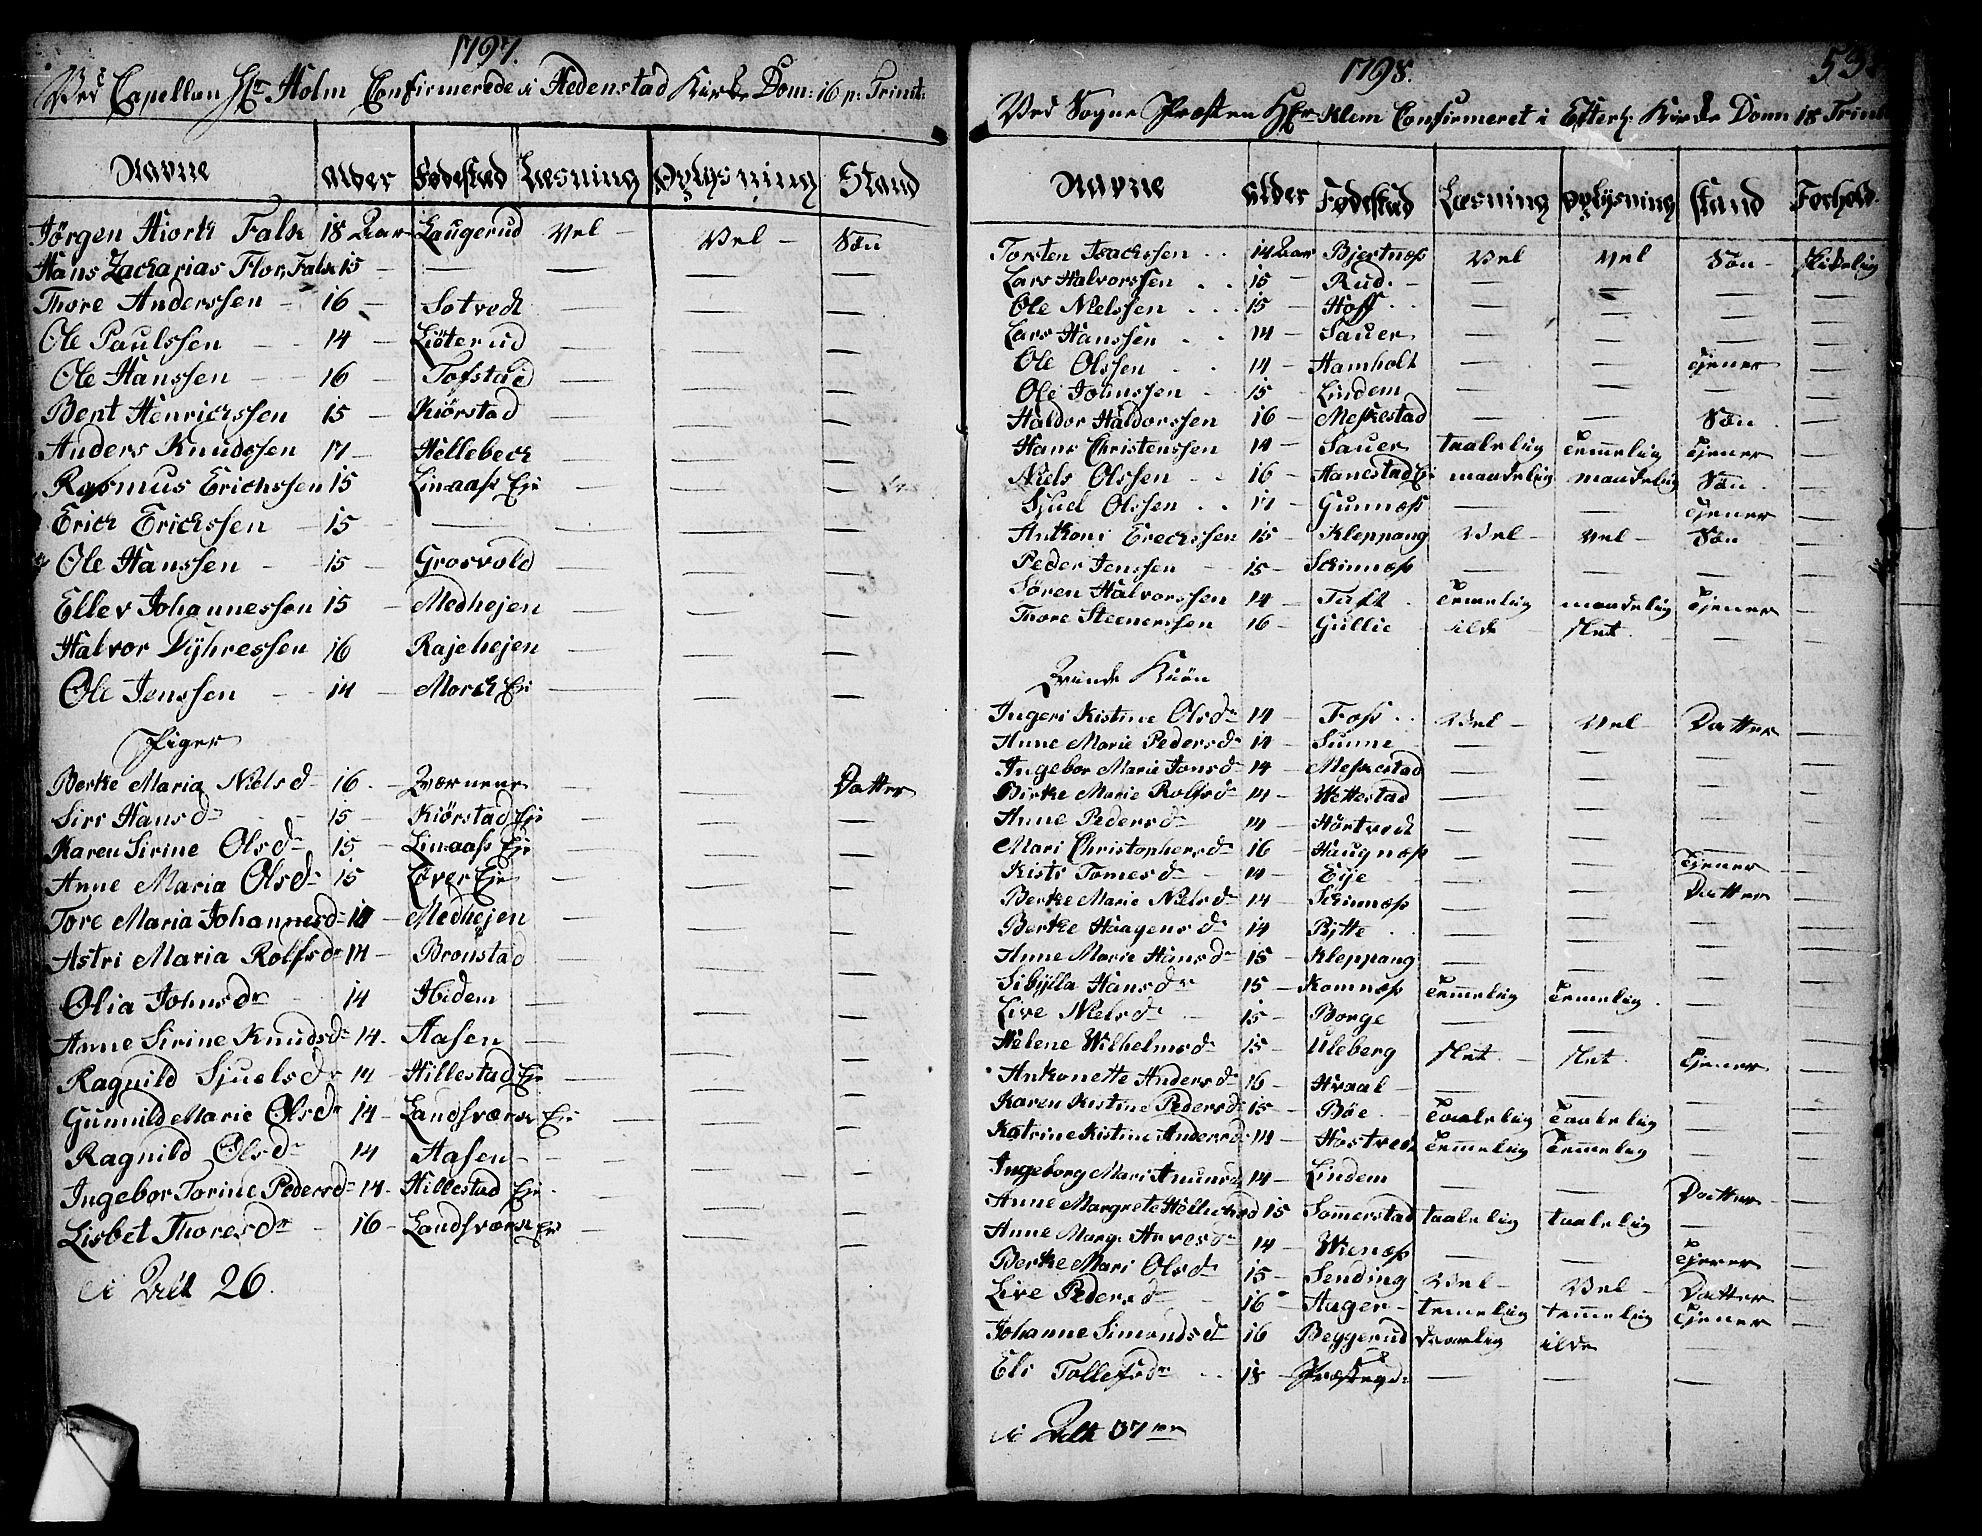 1797.
Ved Capellan Hr Holm Confirmerede i Hedenstad Kirke Dom: 16 p: Trinit:
Navne alder Fødestæd Læsning Oplysning Stand
Jørgen Hiort Falk 18 Aar Laugerud Vel - Vel - Søn
Hans Zacharias Flor, Falk 15 - — — — —
Thore Anderssen 16 - Sotvedt — — —
Ole Paulssen - 14 - Liøterud — — —
Ole Hanssen - 16 - Tofstad — — —
Bent Henrichssen 15 - Kiørstad — — —
Anders Knudssen 17 - Hellebeck — — —
Rasmus Erichssen 15 - Linaass Eje — — —
Erick Erickssen - 15 - — — — —
Ole Hanssen - 15 - Grosvold — — —
Ellev Johannessen 15 - Medhejen — — —
Halvor Dyhressen 16 Rajehejen — — —
Ole Jenssen - 14 - Morck Eje — — —
Piger
Berte Maria Niels d 16. - Værnene — — Datter
Sirs Hans dr - 15 - Kiørstad Eje — — —
Karen Sirine Ols dr 15 - Linaass Eje — — —
Anne Maria Ols dr 15 Løver Eje — — —
Tore Maria Johannes d 14 - Medhejen — — —
Astri Maria Rolfs dr 14 - Bronstad — — —
Olia Johns dr - 14 Ibidem — — —
Anne Sirine Knuds dr 14. Aasen — — —
Ragnild Sjuels dr 14 - Hillestad Eje — — —
Gunnild Marie Ols dr 14 - Landsværk Eje — — —
Ragnild Ols dr 14 Aasen - — — —
Ingebor Torine Peders d 14. Hillestad Eje — — —
Lisbet Thores dr - 16 - Landsværk Eje — — —
i Alt 26.
1798.
Ved Sogne Præsten Hr Klem Confirmeret i Efterk: Kirke Domn 18 Trinit
Navne alder Fødestæd Læsning oplysning stand Forhold.
Torsten Isachssen . . 14 Aar Bjertnæs Vel Vel Søn - skikelig
Lars Halvorssen . . 15 - Rud. - — — — —
Ole Nielssen . . . 15 - Hoff - — — — —
Lars Hanssen . . 14 - Sauer — — — —
Ole Olssen . . 14 - Hamholt — — Tjener —
Ole Johnssen - 15 - Lindem — — — —
Haldor Haldorssen 16 - Meskestad — — Søn —
Hans Christenssen 14 - Sauer taalelig Temmelig Tjener —
Niels Olssen - - 16 - Hanestad Eje maadelig maadelig Søn —
Sjuel Olssen . . 17 - Gunnæs — — Tjener —
Anthoni Erechssen 15 - Kleppang Vel - Vel - Søn —
Peder Jenssen - 15 - Schinnæs — — — —
Søren Halvorssen 14 - Tuft Temelig maadelig Tjener —
Thore Steenerssen 16 - Gullie ilde slet — —
Qvinde Kiøn
Ingeri Kistine Ols dr 14 - Foss . . Vel - Vel - Datter —
Anne Marie Peders dr 14 - Sunne — — — —
Ingebor Marie Jons dr 14 - Meskestad — — — —
Birte Marie Rolfs dr 14 - Wettestad — — — —
Anne Peders dr 14 - Hörtvedt — — — —
Mari Christophers dr 16 - Haugnæs — — — —
Kisti Tomes dr - 14 - Eije — — Tjener —
Berte Marie Niels dr 14 - Schinnæs — — Datter —
Berthe Haagens dr 14 Bitte — — — —
Anne Marie Hans dr 15 - Kleppang — — — —
Sibylla Hans dr 15 - Komnæs Temmelig Temelig . — —
Live Niels dr - 15 - Borge — — — —
Helene Wilhelms dr 15 - Uleberg slet - slet Tjener —
Anthonette Anders dr 16 - Hvaal - — — — —
Karen Kistine Peders dr 15 - Böe Taalelig Taalelig — —
Katrine Kistine Anders dr 14 - Hostvedt Temmelig Temmelig — —
Ingeborg Mari Amuns dr 14 - Lindem — — Datter —
Anne Margrete 15 Sommerstad taalelig taalelig — —
Anne Marg. Arves dr 14 - Wienæs — — Tjener —
Berthe Mari Ols dr 15 - Sending Vel - Vel - Datter —
Live Peders dr - 16 - Auger - temelig temmelig Tjener —
Johanne Simonds dr 16 Beggerud daarlig ilde — —
Eli Tollefs dr . . 18 - Præsteg: — — — —
i Alt 37